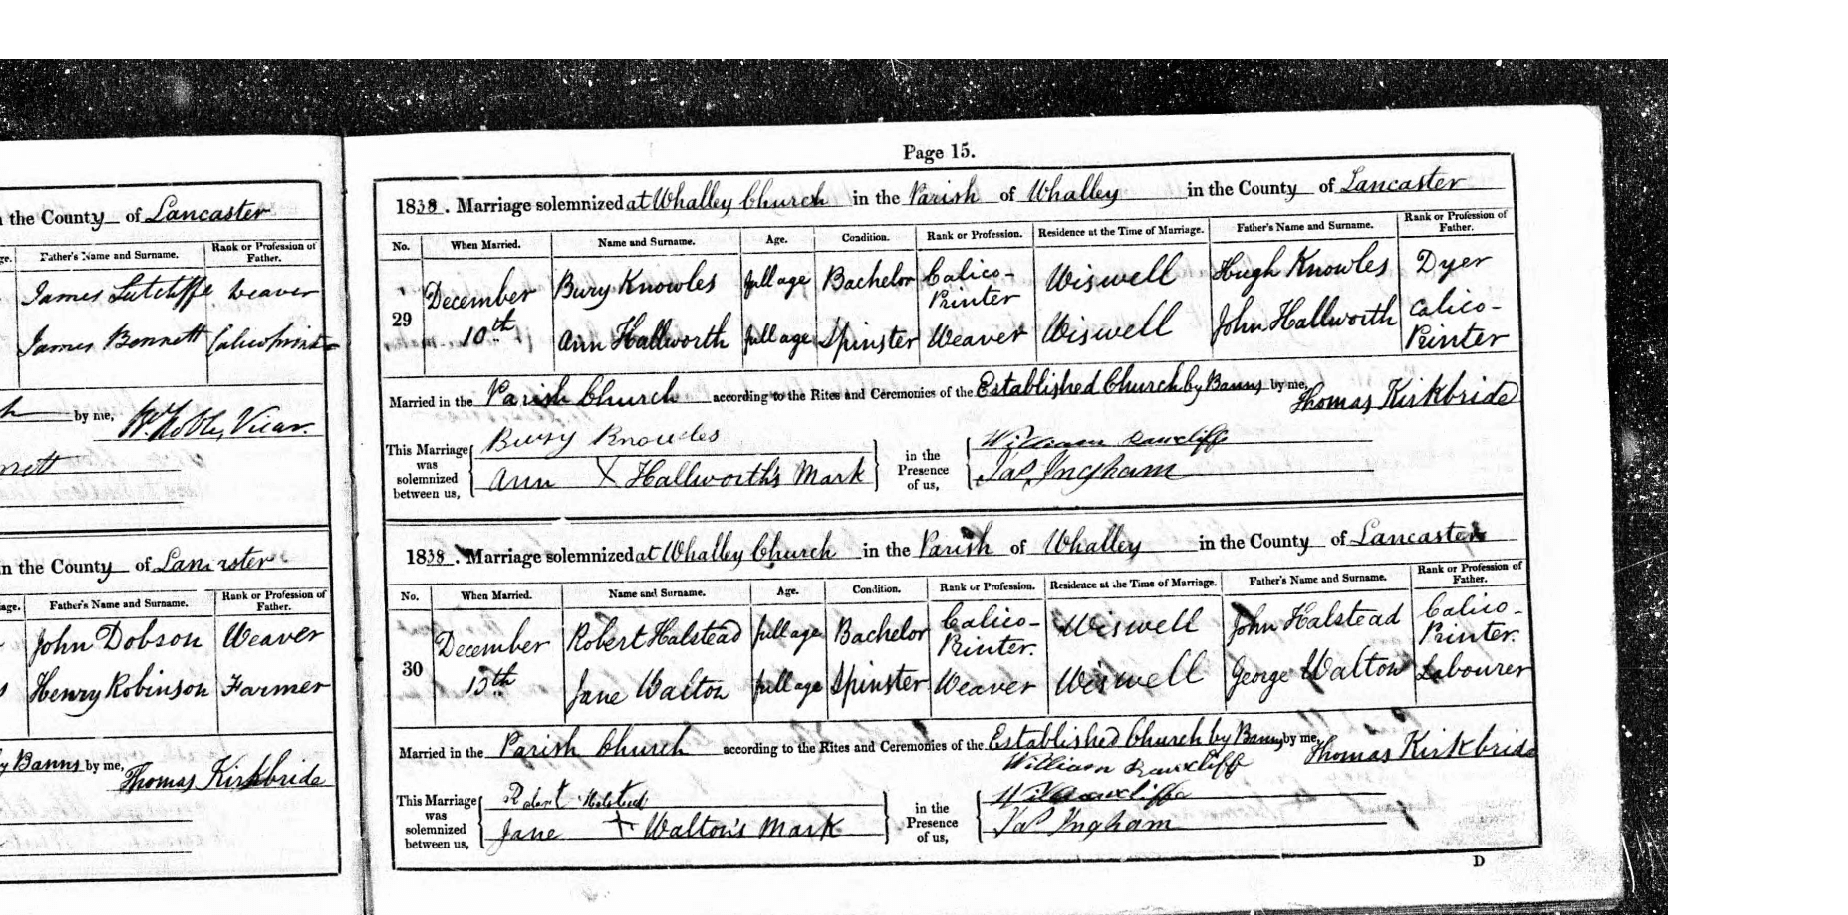 Page 15.
n the County of Lancaster
ge. Father's Name and Surname. Rank or Profession of Father.
James Sutcliffe Weaver
James Bennett Calico print
by me, Vicar.
nett
in the County of Lancaster
age. Father's Name and Surname. Rank or Profession of Father.
John Dobson Weaver
Henry Robinson Farmer
y Banns by me, Thomas Kirkbride
1838. Marriage solemnized at Whalley Church in the Parish of Whalley in the County of Lancaster
No. When Married. Name and Surname. Age. Condition. Rank or Profession. Residence at the Time of Marriage. Father's Name and Surname. Rank or Profession of Father.
29 December 10th
Bury Knowles full age Bachelor Calico-Printer Wiswell Hugh Knowles Dyer
Ann Hallworth full age Spinster Weaver Wiswell John Hallworth Calico-Printer
Married in the Parish Church according to the Rites and Ceremonies of the Established Church by Banns by me, Thomas Kirkbride
This Marriage was solemnized between us,
Bury Knowles
Ann X Hallworth's Mark
in the Presence of us,
William Rawcliffe
Jas Ingham
1838. Marriage solemnized at Whalley Church in the Parish of Whalley in the County of Lancaster
No. When Married. Name and Surname. Age. Condition. Rank or Profession. Residence at the Time of Marriage. Father's Name and Surname. Rank or Profession of Father.
30 December 15th
Robert Halstead full age Bachelor Calico-Printer. Wiswell John Halstead Calico-Printer.
Jane Walton full age Spinster Weaver Wiswell George Walton Labourer
Married in the Parish Church according to the Rites and Ceremonies of the Established Church by Banns by me, Thomas Kirkbride
William Rawcliff
This Marriage was solemnized between us,
Robert Halstead
Jane + Walton's Mark
in the Presence of us,
Jas Ingham
D